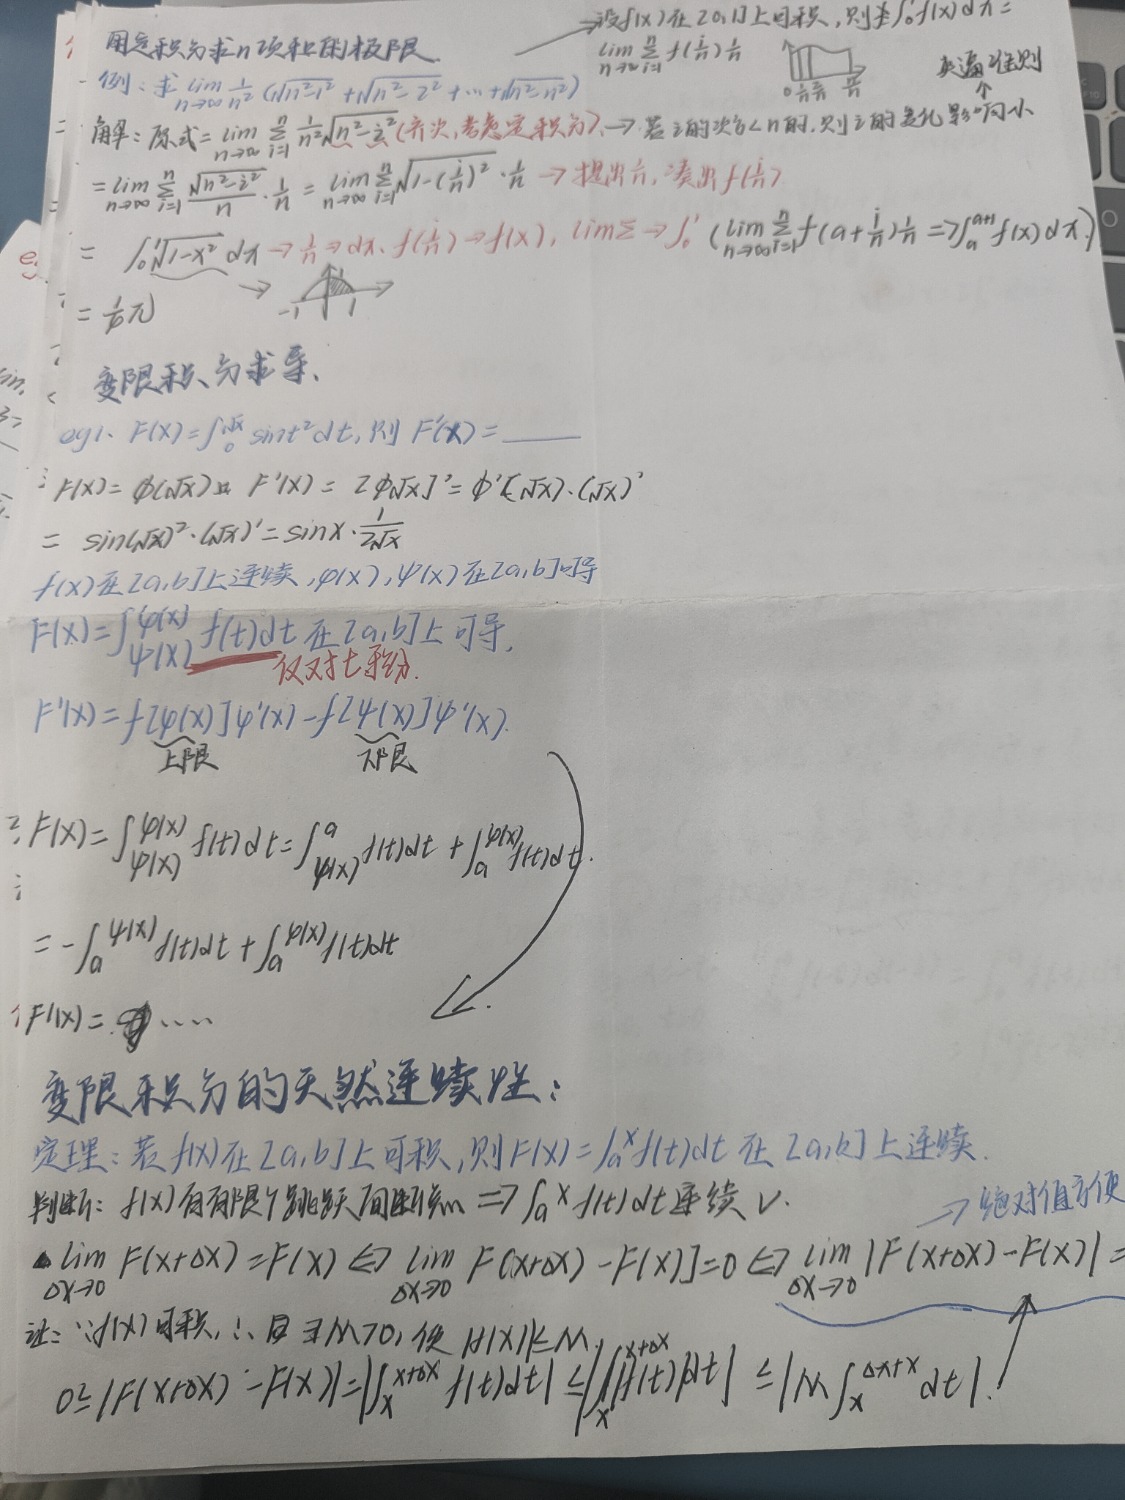 用定积分求n项和的极限.
→设f(x)在[0,1]上可积,则∫₀¹f(x)dx=
lim_{n→∞} Σ_{i=1}^{n} f(i/n) 1/n
0 1/n 2/n n/n
夹逼准则
例:求 lim_{n→∞} 1/n² (√(n²-1²) + √(n²-2²) + … + √(n²-n²))
解:原式= lim_{n→∞} Σ_{i=1}^{n} 1/n² √(n²-i²) (齐次,考虑定积分).→若i的次方<n的,则i的变化影响小
= lim_{n→∞} Σ_{i=1}^{n} √(n²-i²)/n · 1/n = lim_{n→∞} Σ_{i=1}^{n} √(1-(i/n)²) · 1/n → 提出1/n,凑出f(i/n)
= ∫₀¹ √(1-x²) dx → 1/n → dx. f(i/n) → f(x), limΣ → ∫₀¹ (lim_{n→∞} Σ_{i=1}^{n} f(a+i/n) 1/n ⇒ ∫_a^{a+1} f(x)dx.)
-1 1
变限积分求导.
eg1. F(x)=∫₀^{√x} sint²dt,则 F'(x)= ____
F(x)= φ(√x) 且 F'(x)= [φ√x]' = φ'[√x)·(√x)'
= sin(√x)²·(√x)' = sinx· 1/(2√x)
f(x)在[a,b]上连续,φ(x),ψ(x)在[a,b]可导
F(x)=∫_{ψ(x)}^{φ(x)} f(t)dt 在[a,b]上可导,
仅对t积分.
F'(x)=f[φ(x)]φ'(x)-f[ψ(x)]ψ'(x).
上限 下限
F(x)=∫_{ψ(x)}^{φ(x)} f(t)dt=∫_{ψ(x)}^{a} f(t)dt + ∫_a^{φ(x)} f(t)dt.
= -∫_a^{ψ(x)} f(t)dt + ∫_a^{φ(x)} f(t)dt
F'(x)= ....
变限积分的天然连续性:
定理:若f(x)在[a,b]上可积,则F(x)=∫_a^x f(t)dt 在[a,b]上连续.
判断: f(x)有有限个跳跃间断点 ⇒ ∫_a^x f(t)dt连续 √.
→绝对值方便
lim_{Δx→0} F(x+Δx)=F(x) ⇔ lim_{Δx→0} F(x+Δx)-F(x)]=0 ⇔ lim_{Δx→0} |F(x+Δx)-F(x)|=
证: ∵f(x)可积, ∴ 且∃M>0, 使|f(x)|≤M,
0≤|F(x+Δx)-F(x)|=|∫_x^{x+Δx} f(t)dt| ≤ |∫_x^{x+Δx} |f(t)|dt| ≤ |M∫_x^{Δx+x} dt|.